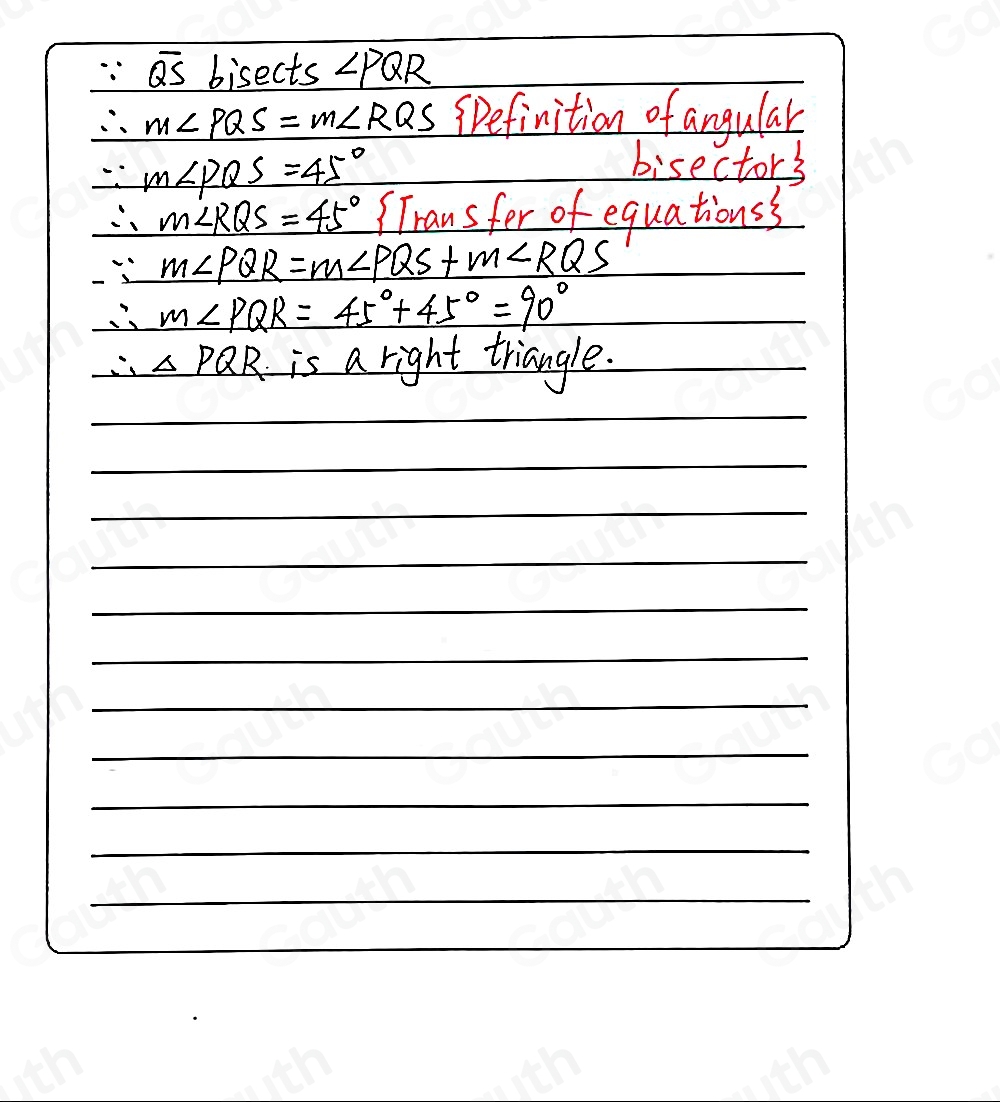 ∵ Q̅S̅ bisects ∠PQR
∴ m∠PQS = m∠RQS {Definition of angular
bisector}
∵ m∠PQS = 45°
∴ m∠RQS = 45° {Transfer of equations}
∵ m∠PQR = m∠PQS + m∠RQS
∴ m∠PQR = 45° + 45° = 90°
∴ △ PQR. is a right triangle.